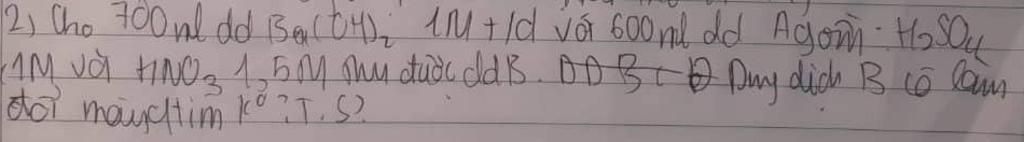 2) Cho 700ml dd Ba(OH)₂ 1M t/d với 600ml dd A gồm: H₂SO₄
1M với HNO₃ 1,5M thu được ddB. Dung dịch B có làm
đổi màu q tím k⁰? T.S?